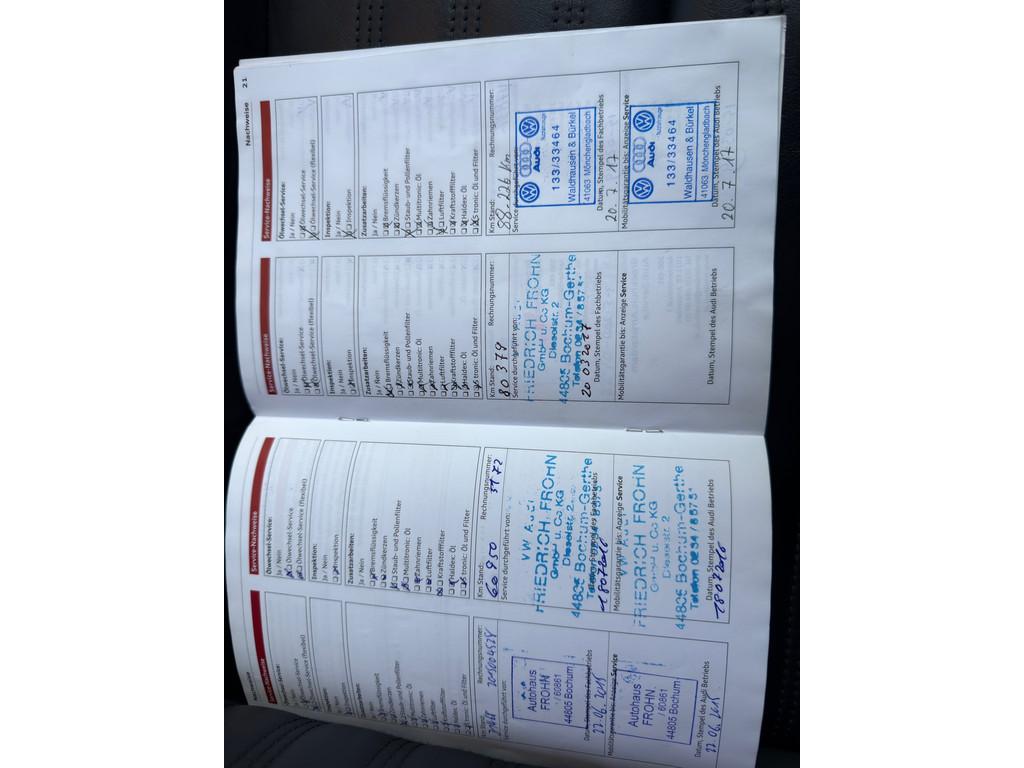 Service-Nachweise
Ölwechsel-Service:
Ja / Nein
Ölwechsel-Service
Ölwechsel-Service (flexibel)
Inspektion:
Ja / Nein
Inspektion
Zusatzarbeiten:
Ja / Nein
Bremsflüssigkeit
Zündkerzen
Staub- und Pollenfilter
Multitronic: Öl
Zahnriemen
Luftfilter
Kraftstofffilter
Haldex: Öl
S tronic: Öl und Filter
Km Stand: Rechnungsnummer:
Service durchgeführt von:
Autohaus
FROHN
/ 60861
44805 Bochum
Datum, Stempel des Fachbetriebs
22.06.2015
Mobilitätsgarantie bis: Anzeige Service
Autohaus
FROHN
/ 60861
44805 Bochum
Datum, Stempel des Audi Betriebs
22.06.2015
Service-Nachweise
Ölwechsel-Service:
Ja / Nein
Ölwechsel-Service
Ölwechsel-Service (flexibel)
Inspektion:
Ja / Nein
Inspektion
Zusatzarbeiten:
Ja / Nein
Bremsflüssigkeit
Zündkerzen
Staub- und Pollenfilter
Multitronic: Öl
Zahnriemen
Luftfilter
Kraftstofffilter
Haldex: Öl
S tronic: Öl und Filter
Km Stand: Rechnungsnummer:
60950 3172
Service durchgeführt von:
VW Audi
FRIEDRICH FROHN
GmbH u. Co KG
Dieselstr. 2
44805 Bochum-Gerthe
Datum, Stempel des Fachbetriebs
18072016
Mobilitätsgarantie bis: Anzeige Service
VW Audi
FRIEDRICH FROHN
GmbH u. Co KG
Dieselstr. 2
44805 Bochum-Gerthe
Telefon 0234/8575
Datum, Stempel des Audi Betriebs
18072016
Service-Nachweise
Ölwechsel-Service:
Ja / Nein
Ölwechsel-Service
Ölwechsel-Service (flexibel)
Inspektion:
Ja / Nein
Inspektion
Zusatzarbeiten:
Ja / Nein
Bremsflüssigkeit
Zündkerzen
Staub- und Pollenfilter
Multitronic: Öl
Zahnriemen
Luftfilter
Kraftstofffilter
Haldex: Öl
S tronic: Öl und Filter
Km Stand: Rechnungsnummer:
80379
Service durchgeführt von:
FRIEDRICH FROHN
GmbH u. Co KG
Dieselstr. 2
44805 Bochum-Gerthe
Telefon 0234/8575
20032017
Datum, Stempel des Fachbetriebs
Mobilitätsgarantie bis: Anzeige Service
Datum, Stempel des Audi Betriebs
Nachweise 21
Service-Nachweise
Ölwechsel-Service:
Ja / Nein
Ölwechsel-Service
Ölwechsel-Service (flexibel)
Inspektion:
Ja / Nein
Inspektion
Zusatzarbeiten:
Ja / Nein
Bremsflüssigkeit
Zündkerzen
Staub- und Pollenfilter
Multitronic: Öl
Zahnriemen
Luftfilter
Kraftstofffilter
Haldex: Öl
S tronic: Öl und Filter
Km Stand: Rechnungsnummer:
88.226 Km
Service durchgeführt von:
Audi Nutzfahrzeuge
133/33464
Waldhausen & Bürkel
41063 Mönchengladbach
Datum, Stempel des Fachbetriebs
20.7.17
Mobilitätsgarantie bis: Anzeige Service
Audi Nutzfahrzeuge
133/33464
Waldhausen & Bürkel
41063 Mönchengladbach
Datum, Stempel des Audi Betriebs
20.7.17